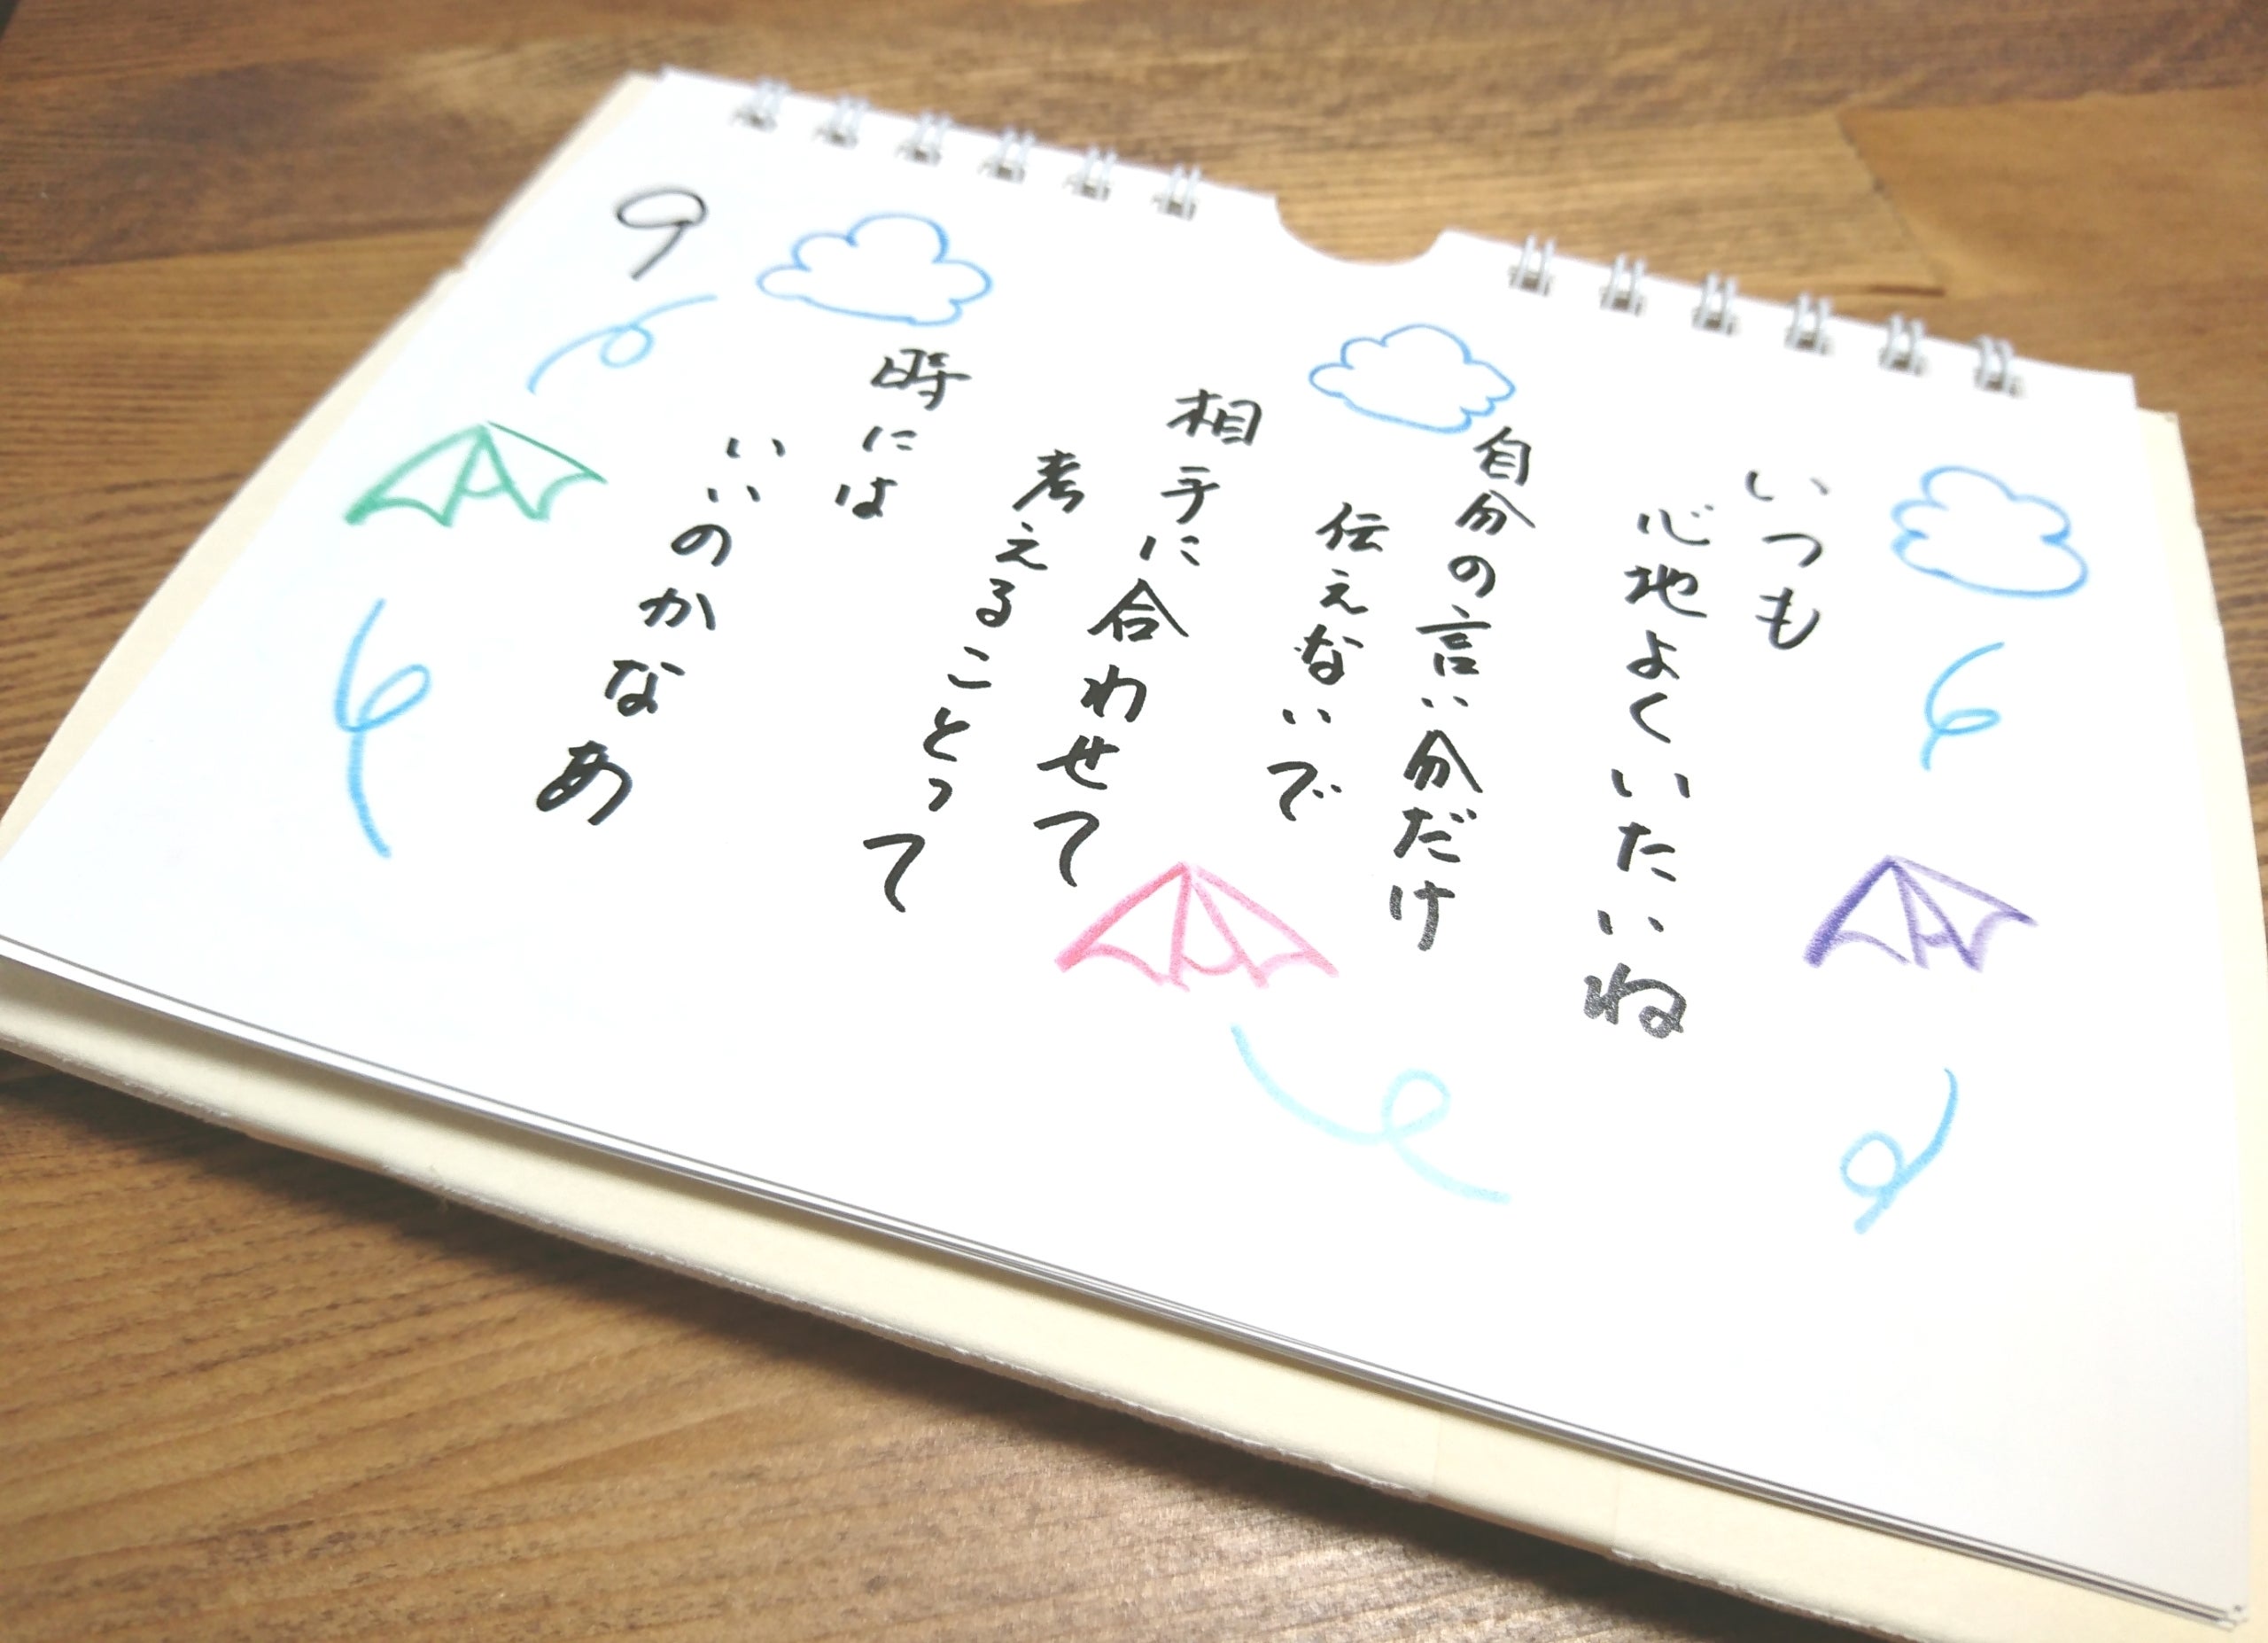 いつも
心地よくいたいね
自分の言い分だけ
伝えないで
相手に合わせて
考えることって
時には
いいのかなあ
9